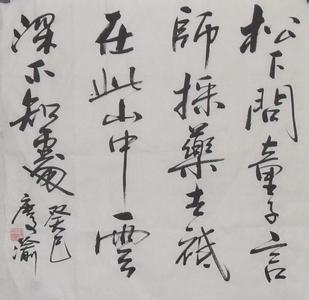 松下問童子言
師採藥去祗
在此山中雲
深不知處
癸巳
渝